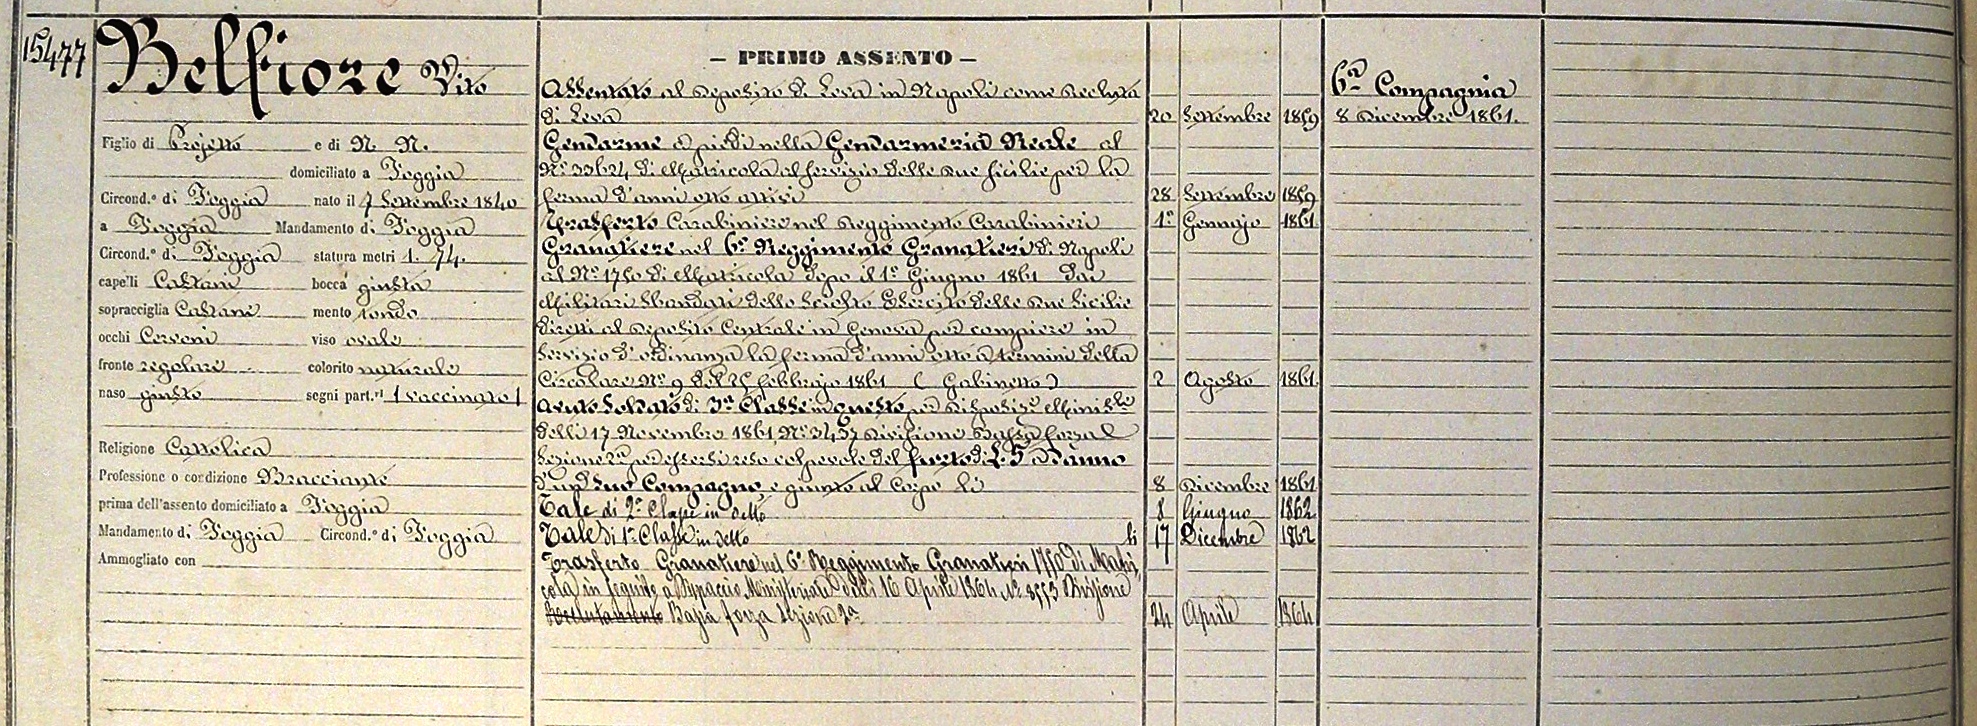 15477
Belfiore Vito
Figlio di Projetto e di N. N.
domiciliato a Foggia
Circond.º di Foggia nato il 7 Settembre 1840
a Foggia Mandamento di Foggia
Circond.º di Foggia statura metri 1. 74.
capelli Castani bocca giusta
sopracciglia Castane mento tondo
occhi Cervoni viso ovale
fronte regolare colorito naturale
naso giusto segni part.ri (vaccinato)
Religione Cattolica
Professione o condizione Bracciante
prima dell'assento domiciliato a Foggia
Mandamento di Foggia Circond.º di Foggia
Ammogliato con
– PRIMO ASSENTO –
Assentato al Deposito di Leva in Napoli come Recluta
di Leva 20 Settembre 1859
Gendarme a piedi nella Gendarmeria Reale al
Nº 33624 di Matricola al servizio delle Due Sicilie per la
ferma d'anni otto attivi 28 Settembre 1859
Trasferto Carabiniere nel Reggimento Carabinieri 1º Gennajo 1861
Granatiere nel 6º Reggimento Granatieri di Napoli
al Nº 1750 di Matricola dopo il 1º Giugno 1861 Dai
Militari Sbandati dello Sciolto Esercito delle Due Sicilie
diretti al Deposito Centrale in Genova per compiere in
servizio d'ordinanza la ferma d'anni otto a termini della
Circolare Nº 9 del 25 febbrajo 1861 (Gabinetto) 2 Agosto 1861
Avuto Soldato di 3ª Classe in questo per Disposiz.e Minist.le
delli 17 Novembre 1861, Nº 3437 Divisione Bassa forza
Sezione 2ª per essersi reso colpevole del furto di L. 5 a Danno
d'un suo Compagno, e giunto al Corpo li 8 Dicembre 1861
Tale di 2ª Classe in detto 8 Giugno 1862
Tale di 1ª Classe in detto li 17 Dicembre 1862
Trasferto Granatiere nel 6º Reggimento Granatieri 1750 di Matri,
cola in seguito a Dispaccio Ministeriale delli 16 Aprile 1864 Nº 3553 Divisione
Reclutamento Bassa forza Sezione 2ª 24 Aprile 1864
6ª Compagnia
8 Dicembre 1861.